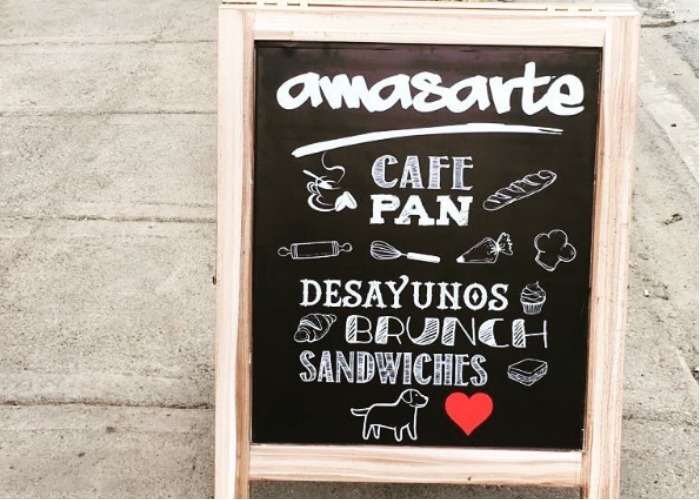 amasarte
CAFE
PAN
DESAYUNOS
BRUNCH
SANDWICHES